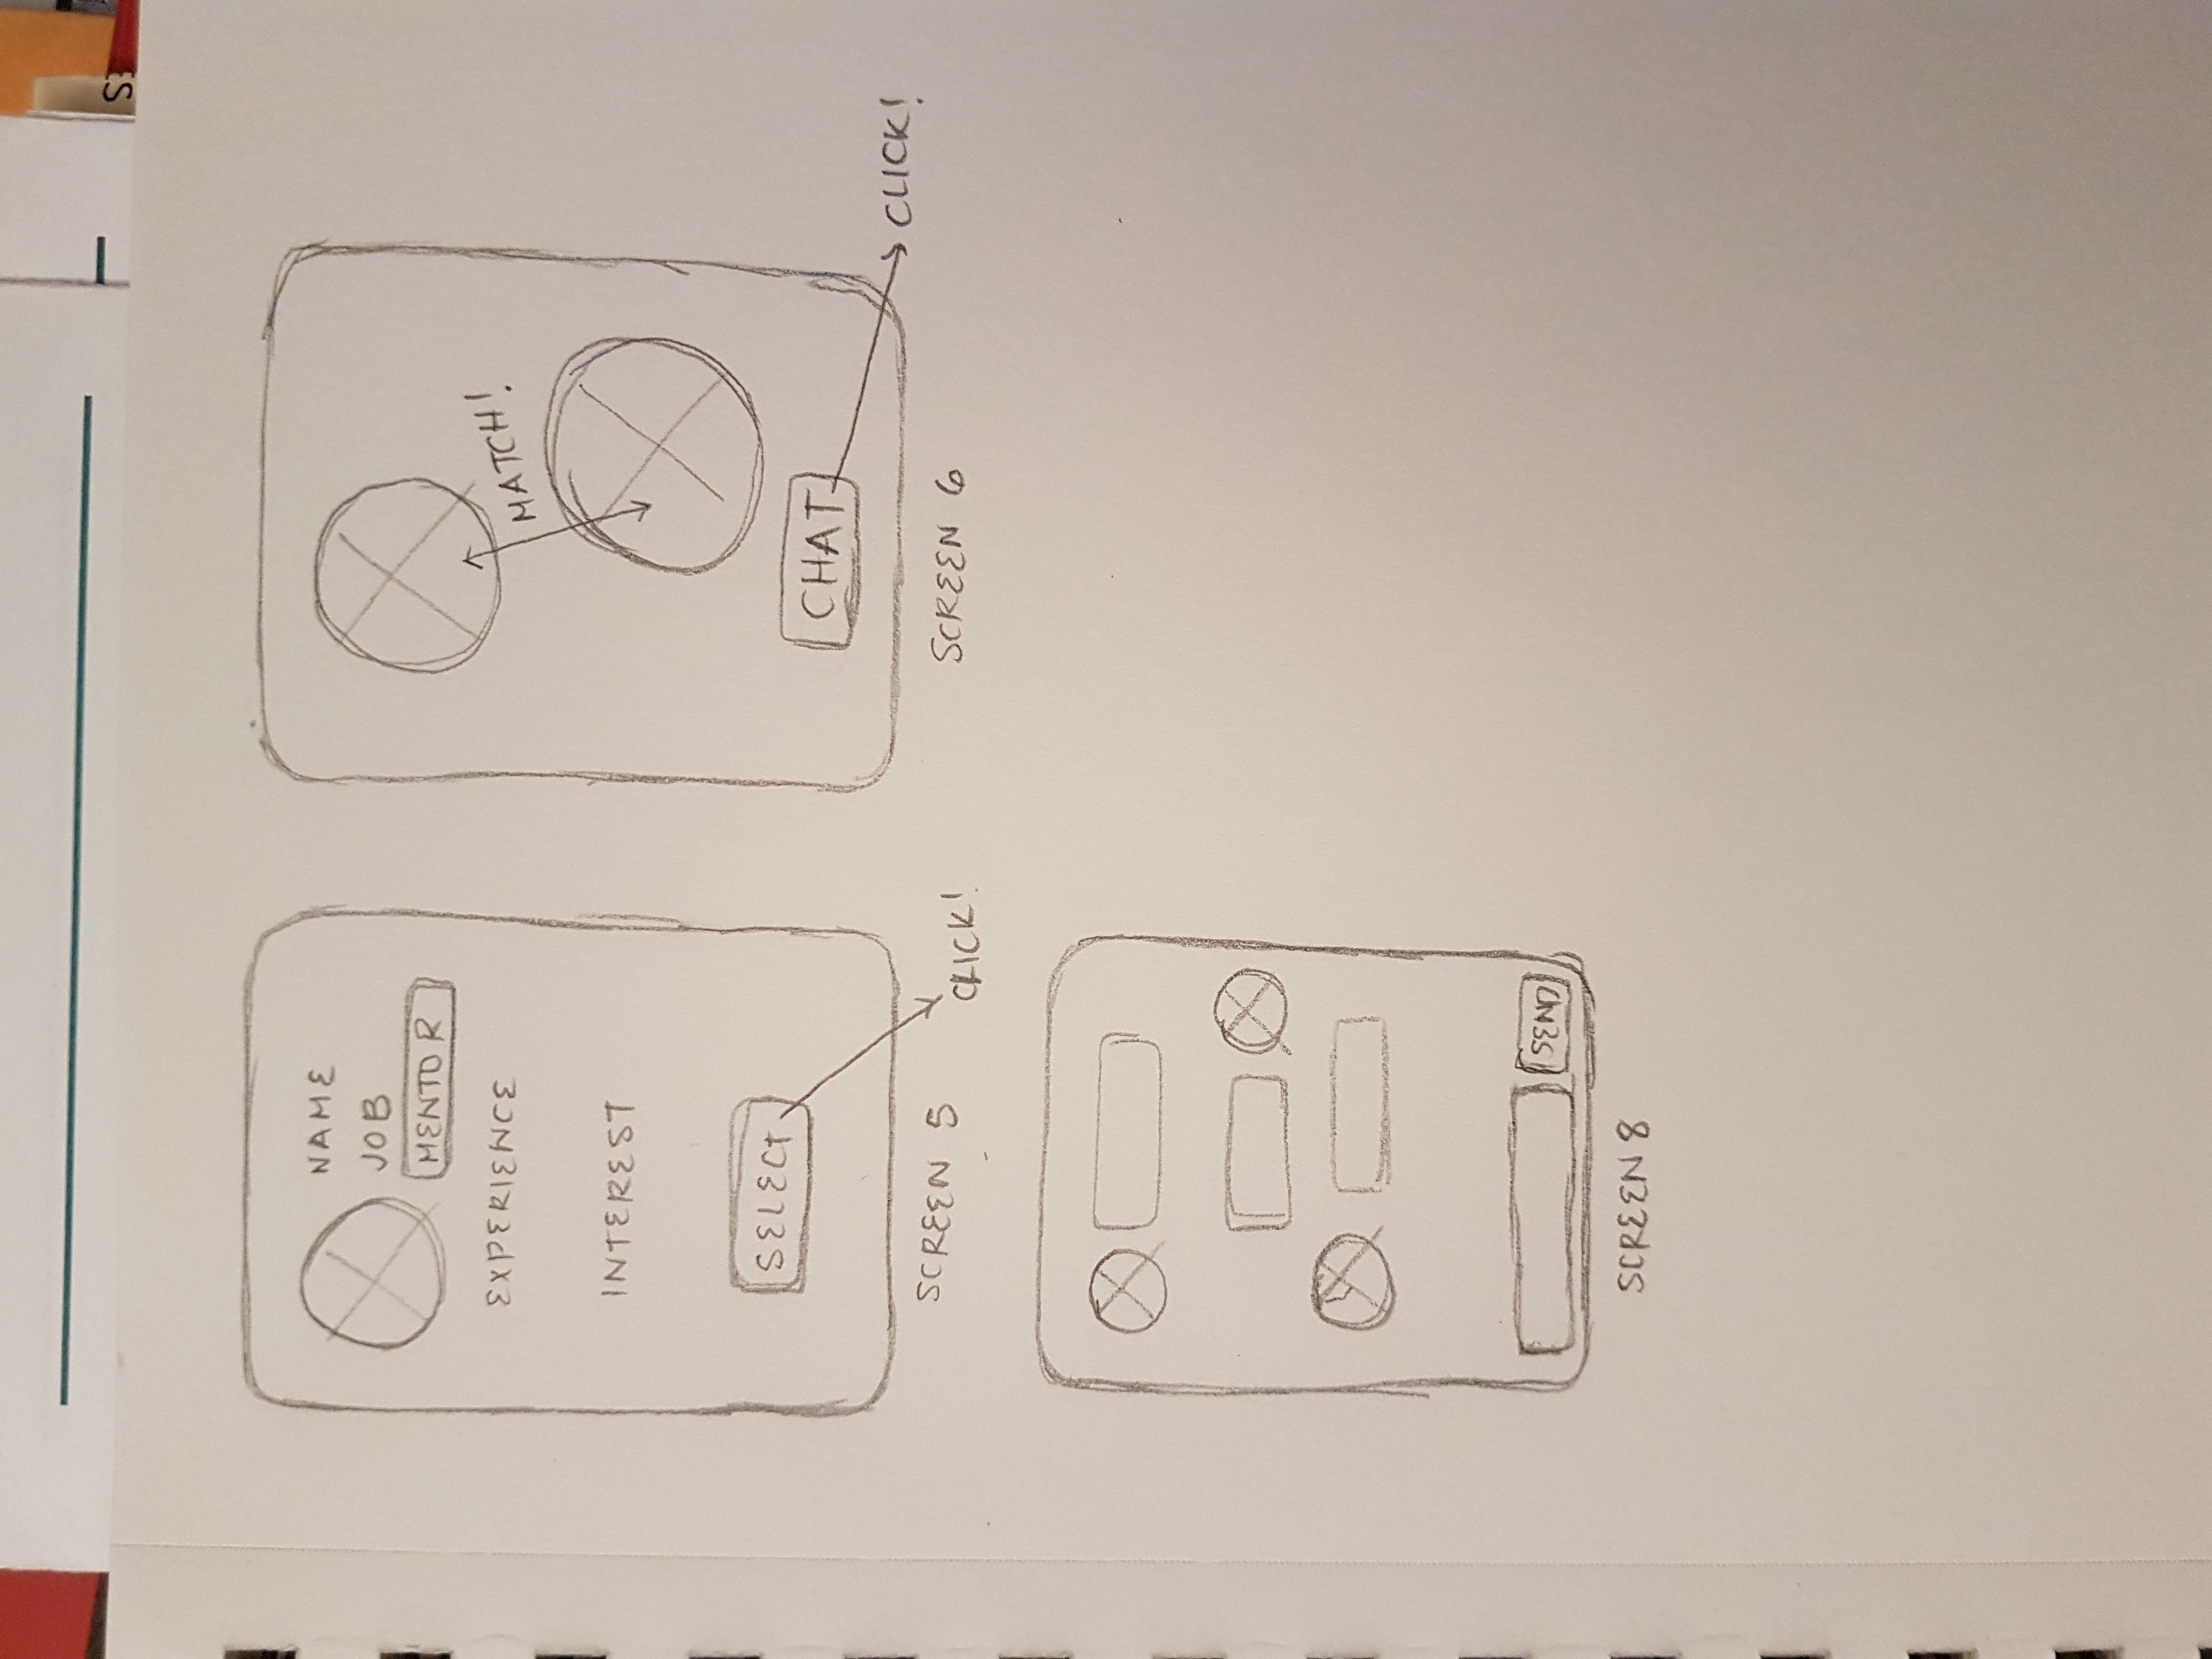 NAME
JOB
MENTOR
EXPERIENCE
INTEREST
SELECT
SCREEN 5
CLICK!
MATCH!
CHAT
CLICK!
SCREEN 6
SEND
SCREEN 8